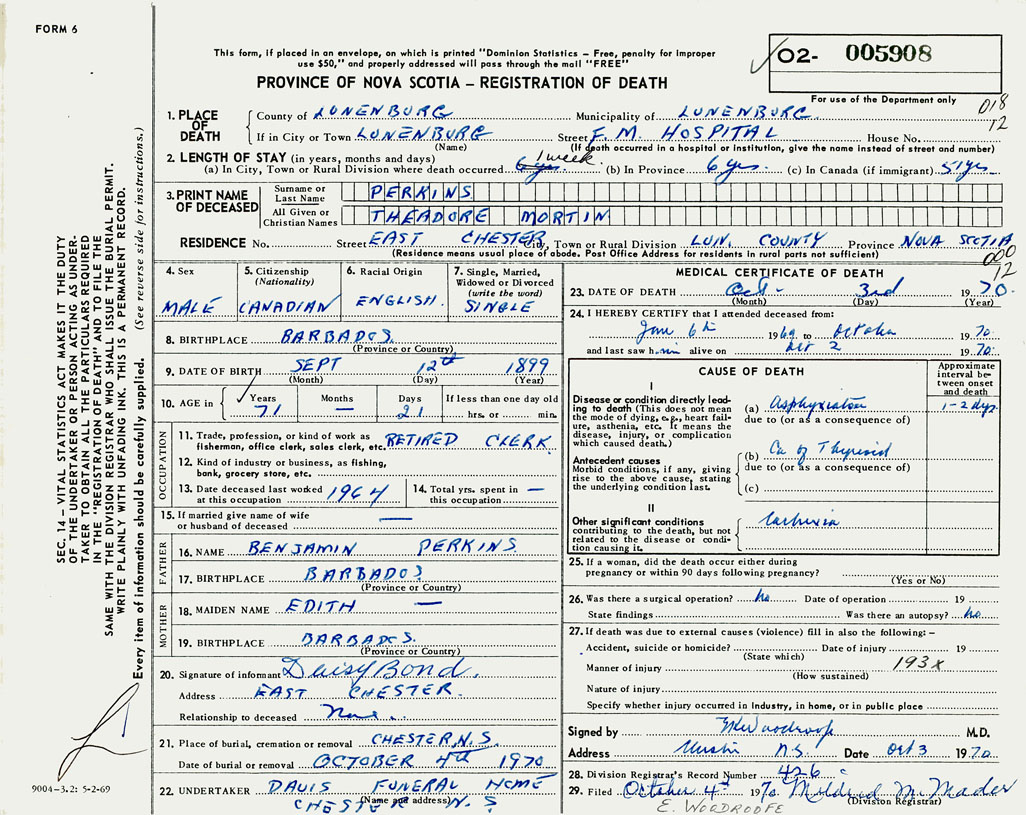 FORM 6
This form, if placed in an envelope, on which is printed "Dominion Statistics – Free, penalty for improper
use $50," and properly addressed will pass through the mail "FREE"
O2- 005908
PROVINCE OF NOVA SCOTIA – REGISTRATION OF DEATH
For use of the Department only
018
12
1. PLACE OF DEATH County of LUNENBURG Municipality of LUNENBURG
If in City or Town LUNENBURG Street F. M. HOSPITAL House No.
(Name) (If death occurred in a hospital or institution, give the name instead of street and number)
2. LENGTH OF STAY (in years, months and days)
(a) In City, Town or Rural Division where death occurred 6 yrs. 1 week (b) In Province 6 yrs. (c) In Canada (if immigrant) 51 yrs
3. PRINT NAME OF DECEASED Surname or Last Name PERKINS
All Given or Christian Names THEADORE MORTIN
RESIDENCE No. Street EAST CHESTER City, Town or Rural Division LUN. COUNTY Province NOVA SCOTIA
(Residence means usual place of abode. Post Office Address for residents in rural parts not sufficient)
000
12
4. Sex MALE
5. Citizenship (Nationality) CANADIAN
6. Racial Origin ENGLISH
7. Single, Married, Widowed or Divorced (write the word) SINGLE
8. BIRTHPLACE BARBADOS.
(Province or Country)
9. DATE OF BIRTH SEPT 12th 1899
(Month) (Day) (Year)
10. AGE in Years 71 Months – Days 21 If less than one day old hrs. or min.
OCCUPATION
11. Trade, profession, or kind of work as fisherman, office clerk, sales clerk, etc. RETIRED CLERK
12. Kind of industry or business, as fishing, bank, grocery store, etc.
13. Date deceased last worked at this occupation 1964
14. Total yrs. spent in this occupation –
15. If married give name of wife or husband of deceased –
FATHER
16. NAME BENJAMIN PERKINS
17. BIRTHPLACE BARBADOS
(Province or Country)
MOTHER
18. MAIDEN NAME EDITH –
19. BIRTHPLACE BARBADOS.
(Province or Country)
20. Signature of informant Daisy Bond.
Address EAST CHESTER.
Relationship to deceased None.
21. Place of burial, cremation or removal CHESTER, N.S.
Date of burial or removal OCTOBER 4th 1970
22. UNDERTAKER DAVIS FUNERAL HOME
(Name and address) CHESTER N. S
MEDICAL CERTIFICATE OF DEATH
23. DATE OF DEATH Oct. 3rd 1970.
(Month) (Day) (Year)
24. I HEREBY CERTIFY that I attended deceased from:
Jan 6th 1969 to October 1970
and last saw him alive on Oct 2 1970.
CAUSE OF DEATH
Approximate interval between onset and death
I
Disease or condition directly leading to death (This does not mean the mode of dying, e.g., heart failure, asthenia, etc. It means the disease, injury, or complication which caused death.)
(a) Asphyxiation 1-2 dys.
due to (or as a consequence of)
Antecedent causes
Morbid conditions, if any, giving rise to the above cause, stating the underlying condition last.
(b) Ca of Thyroid
due to (or as a consequence of)
(c)
II
Other significant conditions contributing to the death, but not related to the disease or condition causing it. Cachexia
25. If a woman, did the death occur either during
pregnancy or within 90 days following pregnancy?
(Yes or No)
26. Was there a surgical operation? No Date of operation 19
State findings Was there an autopsy? No
27. If death was due to external causes (violence) fill in also the following:–
Accident, suicide or homicide? Date of injury 19
(State which)
Manner of injury 193X
(How sustained)
Nature of injury
Specify whether injury occurred in industry, in home, or in public place
Signed by Woodroofe M.D.
Address N.S. Date Oct 3 1970.
28. Division Registrar's Record Number 426
29. Filed October 4th 1970 Mildred M. Mader
(Division Registrar)
E. WOODROOFE
SEC. 14 – VITAL STATISTICS ACT MAKES IT THE DUTY
OF THE UNDERTAKER OR PERSON ACTING AS UNDER-
TAKER TO OBTAIN ALL THE PARTICULARS REQUIRED
IN THE "REGISTRATION OF DEATH" AND TO FILE THE
SAME WITH THE DIVISION REGISTRAR WHO SHALL ISSUE THE BURIAL PERMIT.
WRITE PLAINLY WITH UNFADING INK. THIS IS A PERMANENT RECORD.
Every item of information should be carefully supplied. (See reverse side for instructions.)
9004-3.2: 5-2-69